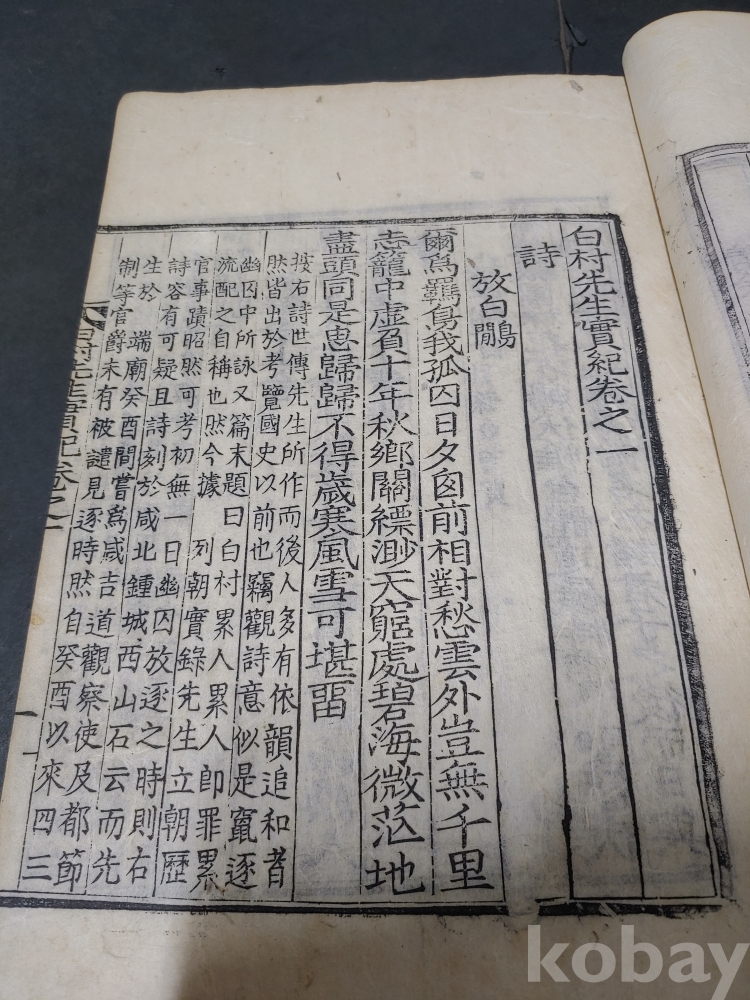 白村先生實紀卷之一
詩
放白鷳
爾爲羈鳥我孤囚日夕囪前相對愁雲外豈無千里
志籠中虛負十年秋鄕關縹渺天窮處碧海微茫地
盡頭同是思歸歸不得歲寒風雪可堪畱
按右詩世傳先生所作而後人多有依韻追和者
然皆出於考覽國史以前也竊觀詩意似是竄逐
幽囚中所詠又篇末題曰白村累人累人卽罪累
流配之自稱也然今據 列朝實錄先生立朝歷
官事蹟昭然可考初無一日幽囚放逐之時則右
詩容有可疑且詩刻於咸北鍾城西山石云而先
生於 端廟癸酉間嘗爲咸吉道觀察使及都節
制等官爵未有被譴見逐時然自癸酉以來四三
白村先生實紀卷之一
一
kobay